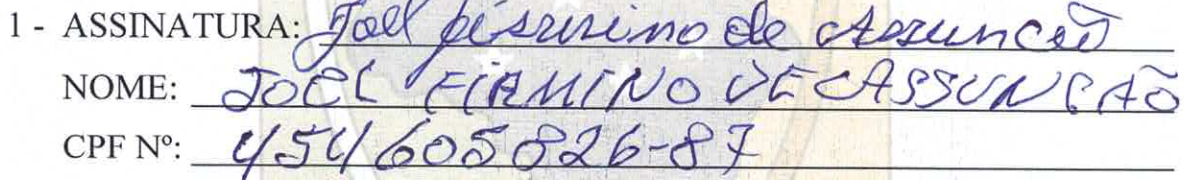 1 - ASSINATURA: Joel firmino de Assunção
NOME: JOEL FIRMINO DE ASSUNÇÃO
CPF Nº: 454605826-87